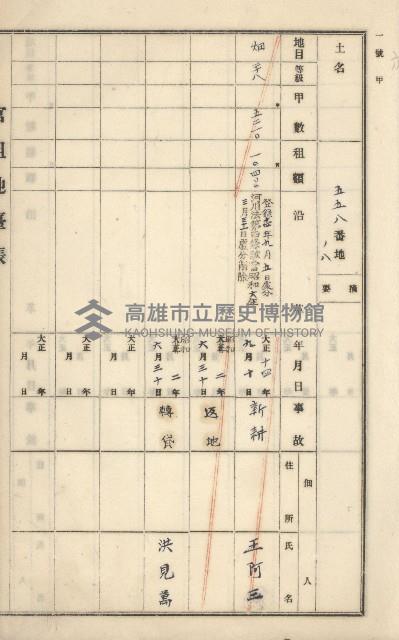 一號甲
土名
五五八番地
ノ八
摘要
地目
等級
甲數
租額
沿革
年月日
事故
佃人
住所
氏名
畑
五二一〇
一〇四〇
三月三十一日處分削除
大正十四年
九月十日
新耕
王阿三
昭和
大正二年
六月三十日
返地
昭和
大正二年
六月三十日
轉貸
洪見萬
大正年
月日
大正年
月日
大正年
月日
官租地臺帳
高雄市立歷史博物館
KAOHSIUNG MUSEUM OF HISTORY